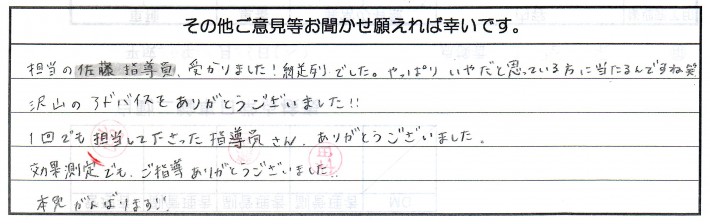 その他ご意見等お聞かせ願えれば幸いです。
担当の佐藤指導員、受かりました!納足りでした。やっぱりいやだと思っている方に当たるんですね笑
沢山のアドバイスをありがとうございました!!
1回でも担当して下さった指導員さん、ありがとうございました。
効果測定でも、ご指導ありがとうございました。
本免がんばります!!